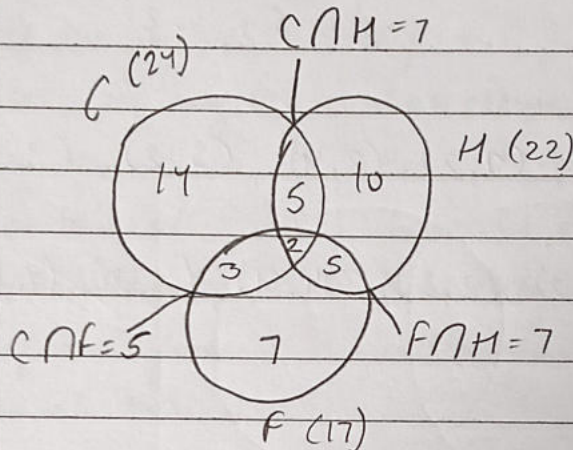 C∩H = 7
C (24)
H (22)
14
5
10
2
3
5
C∩F = 5
7
F∩H = 7
F (17)